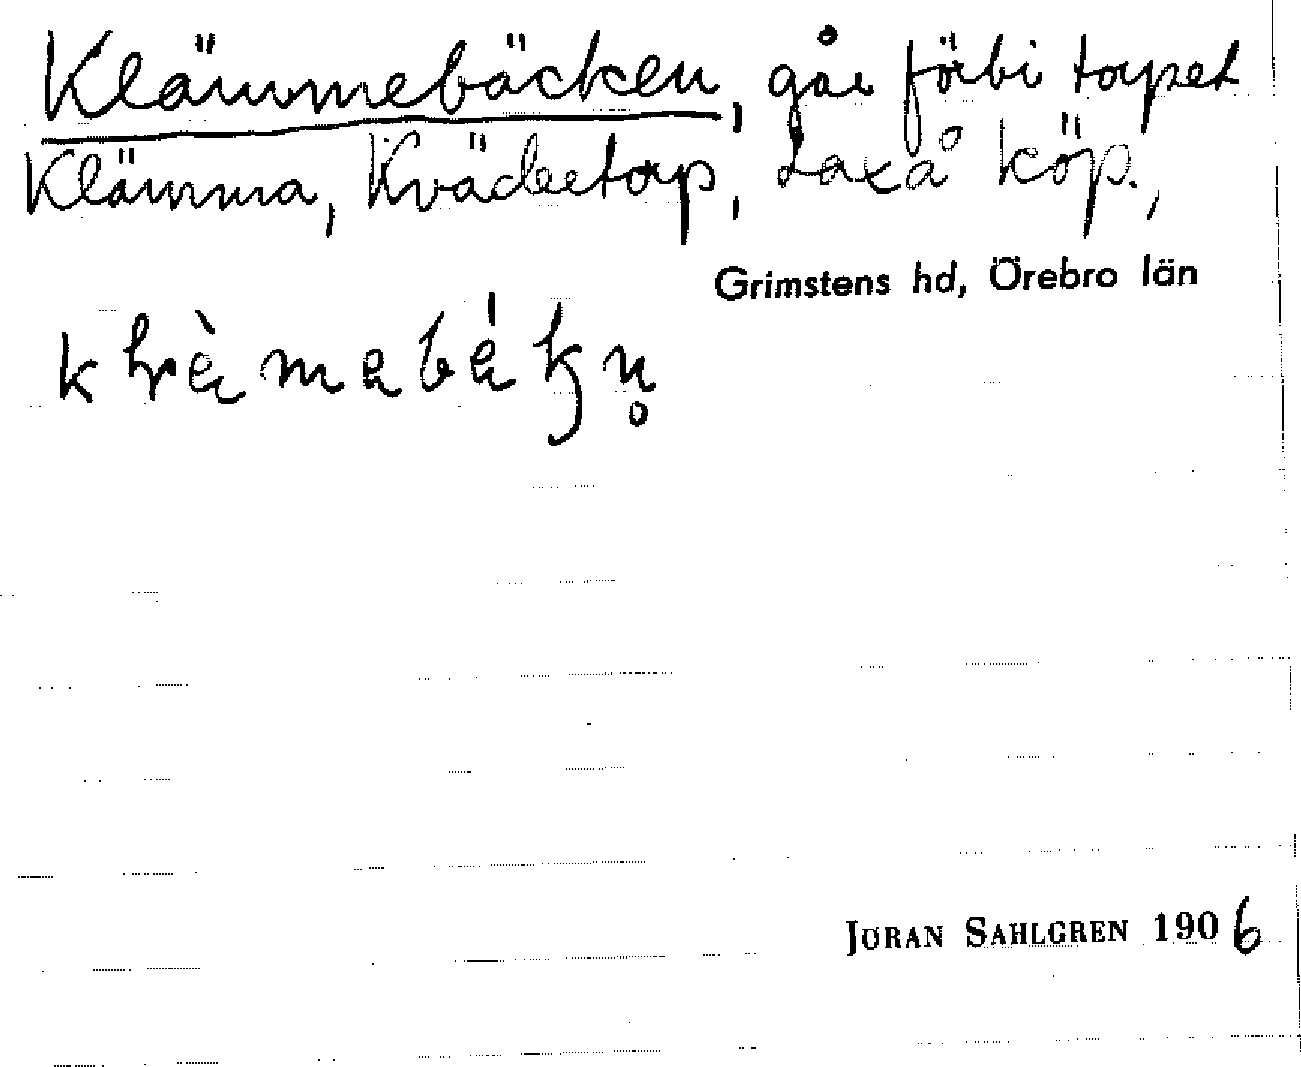 Klämmebäcken, går förbi torpet
Klämma, Kvädetorp, Laxå köp.,
Grimstens hd, Örebro län
JÖRAN SAHLGREN 1906